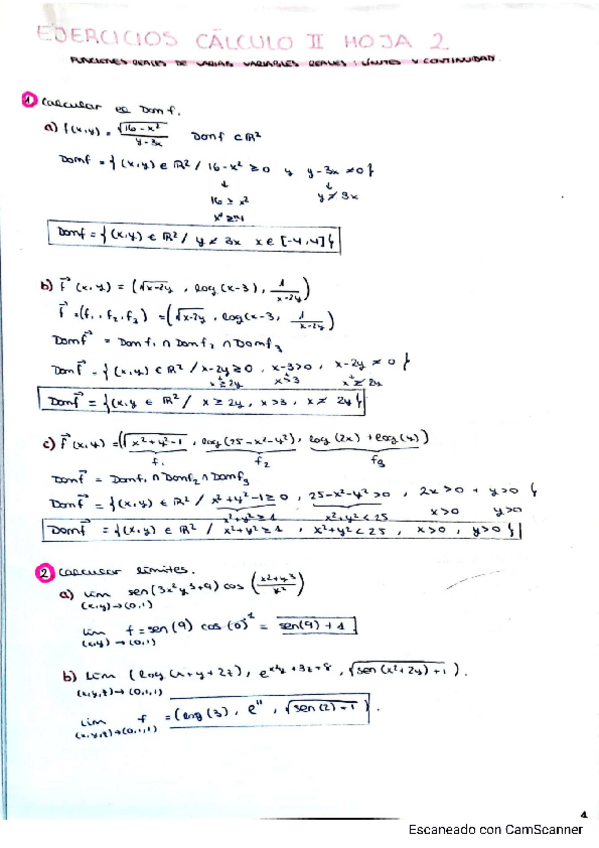 EJERCICIOS CÁLCULO II HOJA 2.
FUNCIONES REALES DE VARIAS VARIABLES REALES: LÍMITES Y CONTINUIDAD.
1 Calcular el Dom f.
a) f(x,y) = √(16-x²) / (y-3x) Dom f ⊂ ℝ²
Dom f = { (x,y) ∈ ℝ² / 16-x² ≥ 0 y y-3x ≠ 0 }
↓ ↓
16 ≥ x² y ≠ 3x
Dom f = { (x,y) ∈ ℝ² / y ≠ 3x x ∈ [-4,4] }
b) f⃗(x,y) = (√(x-2y), log(x-3), 1/(x-2y))
f⃗ = (f₁, f₂, f₃) = (√(x-2y), log(x-3, 1/(x-2y))
Dom f⃗ = Dom f₁ ∩ Dom f₂ ∩ Dom f₃
Dom f⃗ = { (x,y) ∈ ℝ² / x-2y ≥ 0, x-3>0, x-2y ≠ 0 }
x ≥ 2y x>3 x ≠ 2y
Dom f⃗ = { (x,y ∈ ℝ² / x ≥ 2y, x>3, x ≠ 2y }
c) f⃗(x,y) = (√(x²+y²-1), log(25-x²-y²), log(2x) + log(y))
f₁ f₂ f₃
Dom f⃗ = Dom f₁ ∩ Dom f₂ ∩ Dom f₃
Dom f⃗ = { (x,y) ∈ ℝ² / x²+y²-1 ≥ 0, 25-x²-y² > 0, 2x>0 + y>0 }
x²+y² ≥ 1 x²+y² < 25 x>0 y>0
Dom f⃗ = { (x,y) ∈ ℝ² / x²+y² ≥ 1, x²+y² < 25, x>0, y>0 }
2 Calcular límites.
a) lím sen(3x²y³+9) cos ((x²+y³)/x²)
(x,y)→(0,1)
lím f = sen(9) cos(0)¹ = sen(9) + 1
(x,y)→(0,1)
b) Lím (log(x+y+2z), e^(x²y+3z+8), √(sen(x²+2y)+1)).
(x,y,z)→(0,1,1)
lím f = (log(3), e¹¹, √(sen(2)+1)).
(x,y,z)→(0,1,1)
1
Escaneado con CamScanner